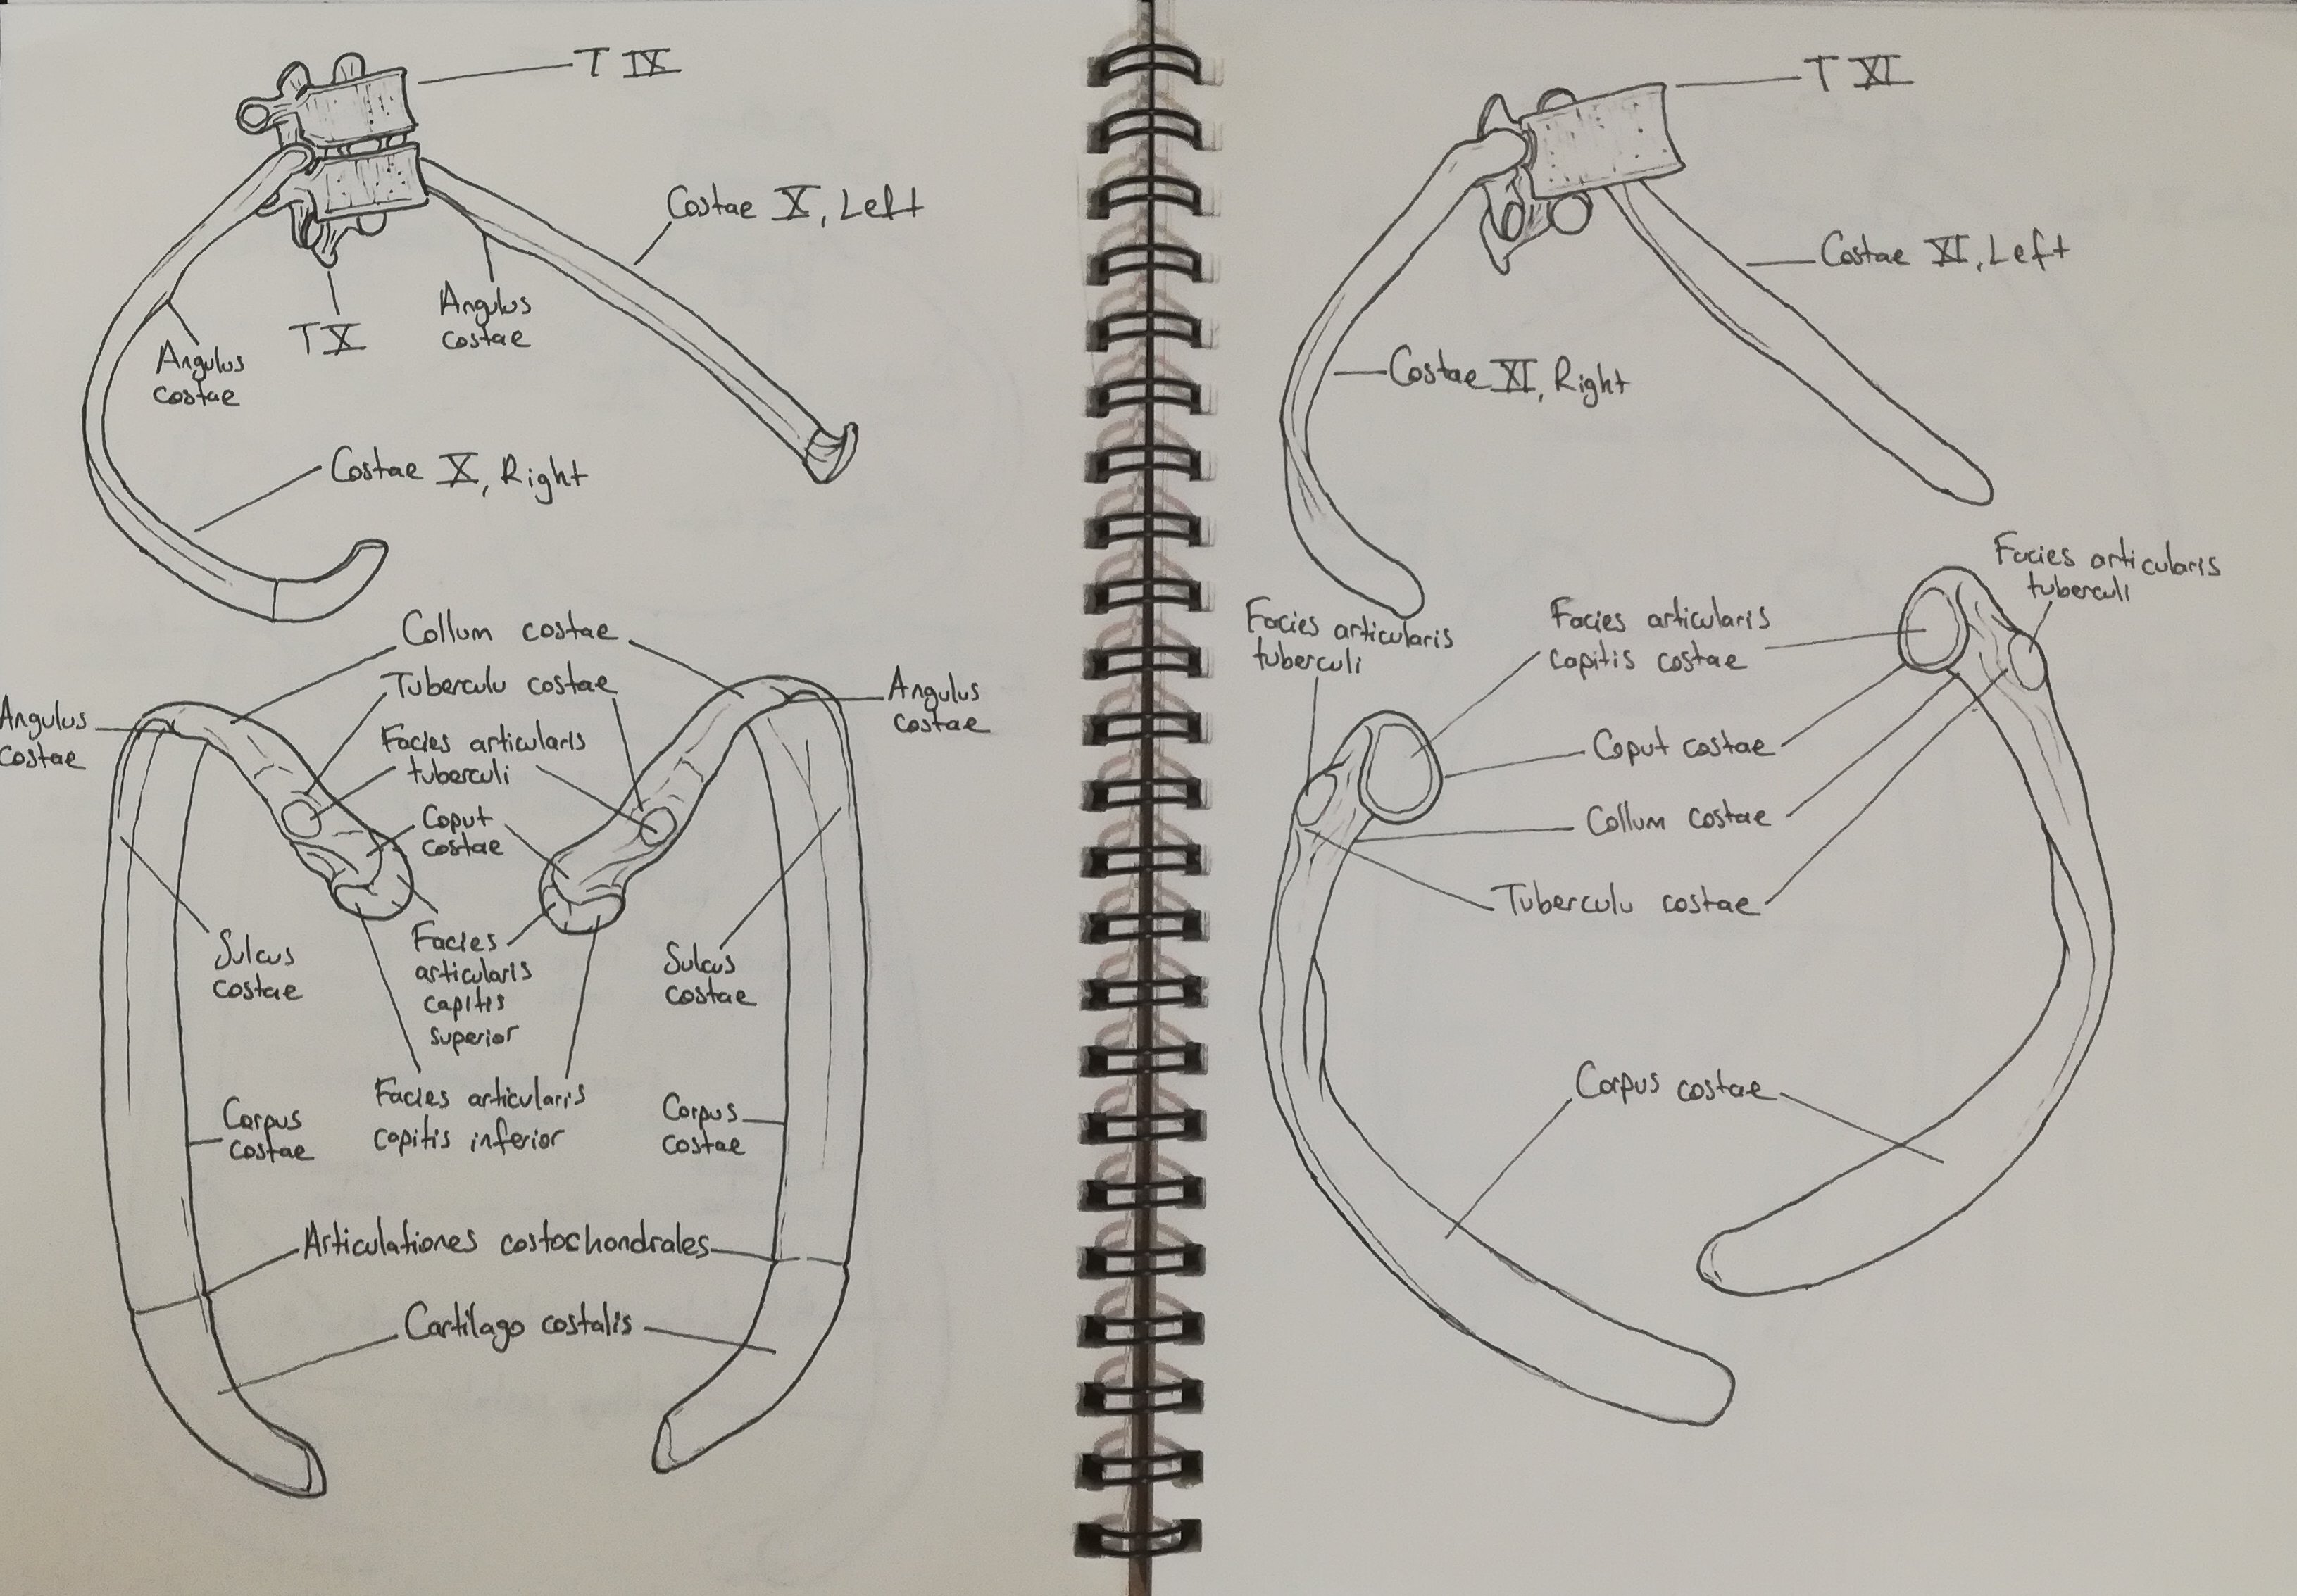 T IX
Costae X, Left
Angulus
costae
T X
Angulus
costae
Costae X, Right
Collum costae
Tuberculu costae
Angulus
costae
Facies articularis
tuberculi
Angulus
costae
Caput
costae
Facies
articularis
capitis
superior
Sulcus
costae
Sulcus
costae
Facies articularis
capitis inferior
Corpus
costae
Corpus
costae
Articulationes costochondrales
Cartilago costalis
T XI
Costae XI, Left
Costae XI, Right
Facies articularis
tuberculi
Facies articularis
tuberculi
Facies articularis
capitis costae
Caput costae
Collum costae
Tuberculu costae
Corpus costae